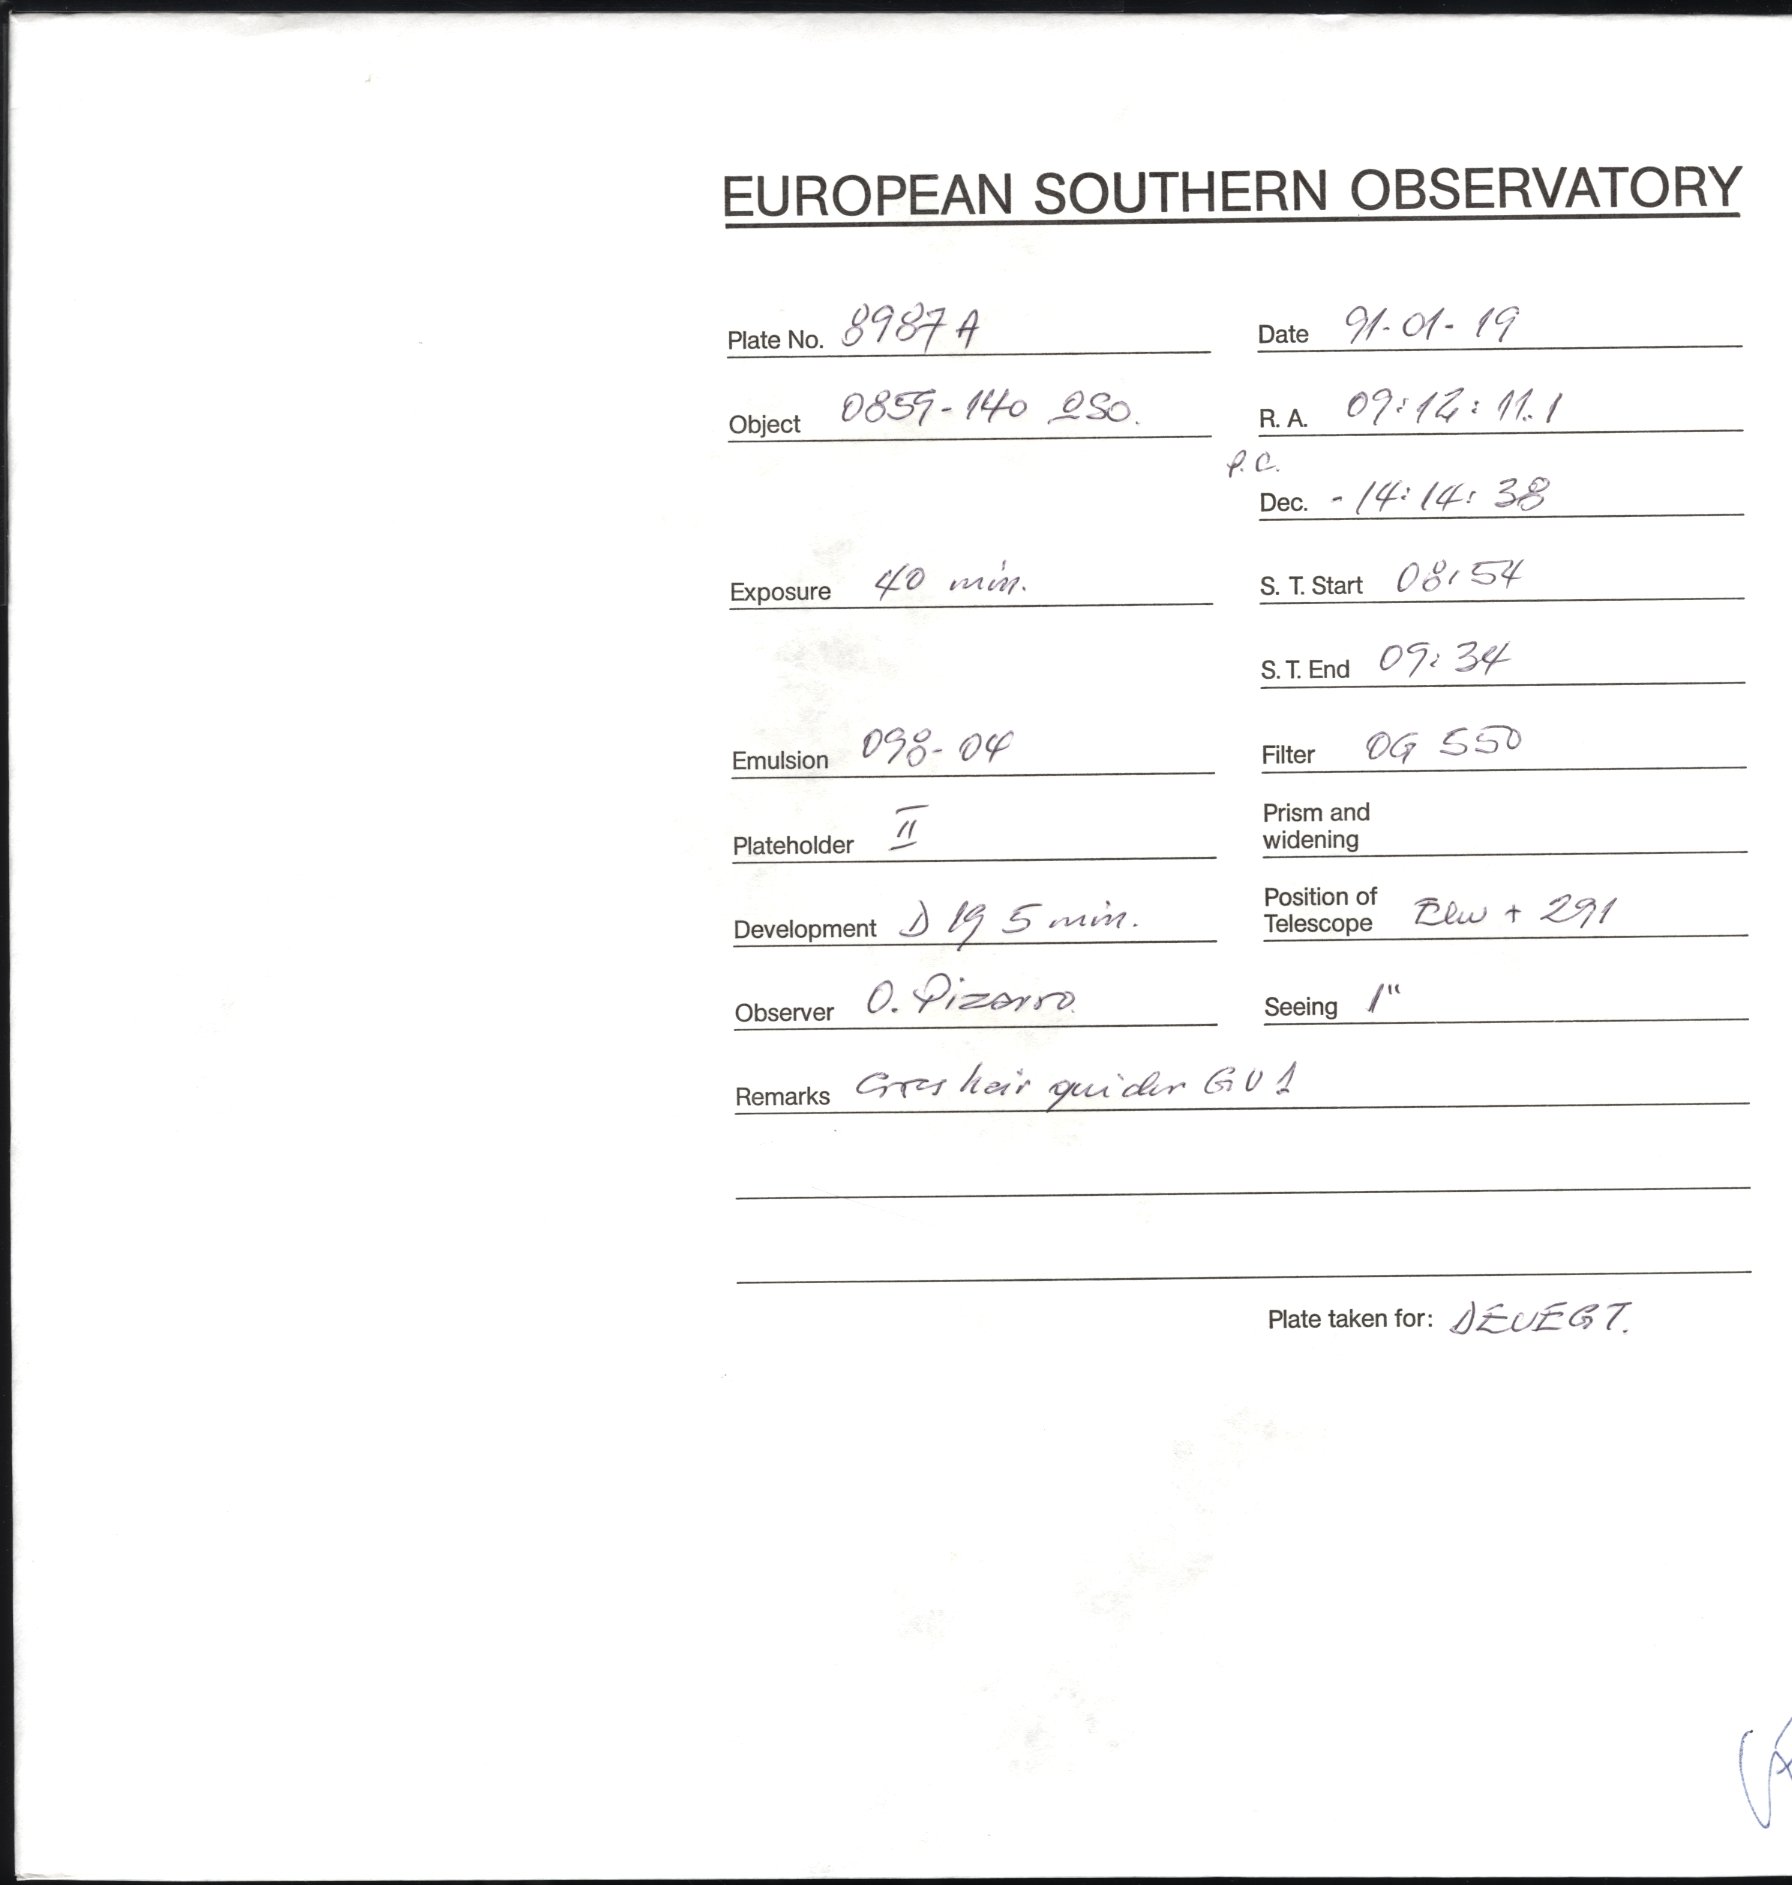 EUROPEAN SOUTHERN OBSERVATORY
Plate No. 8987 A Date 91-01-19
Object 0859-140 QSO. R. A. 09:12:11.1
P.C.
Dec. -14:14:38
Exposure 40 min. S. T. Start 08:54
S. T. End 09:34
Emulsion 098-04 Filter OG 550
Plateholder II Prism and
widening
Development D 19 5 min. Position of
Telescope + 291
Observer O. Pizarro Seeing 1"
Remarks Cross hair guider GU 1
Plate taken for: DEVEGT.